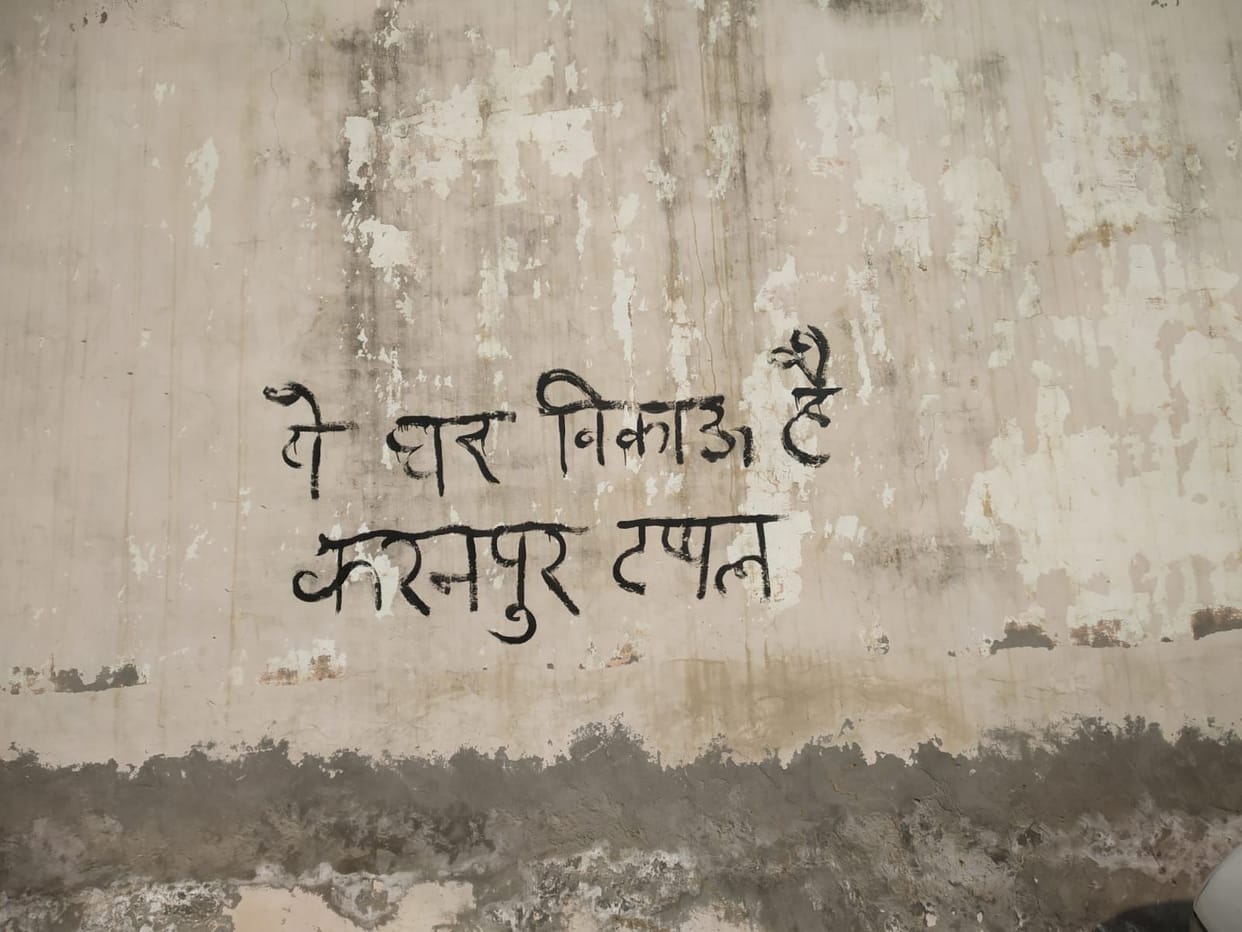 ये घर बिकाऊ है
करनपुर टप्पल